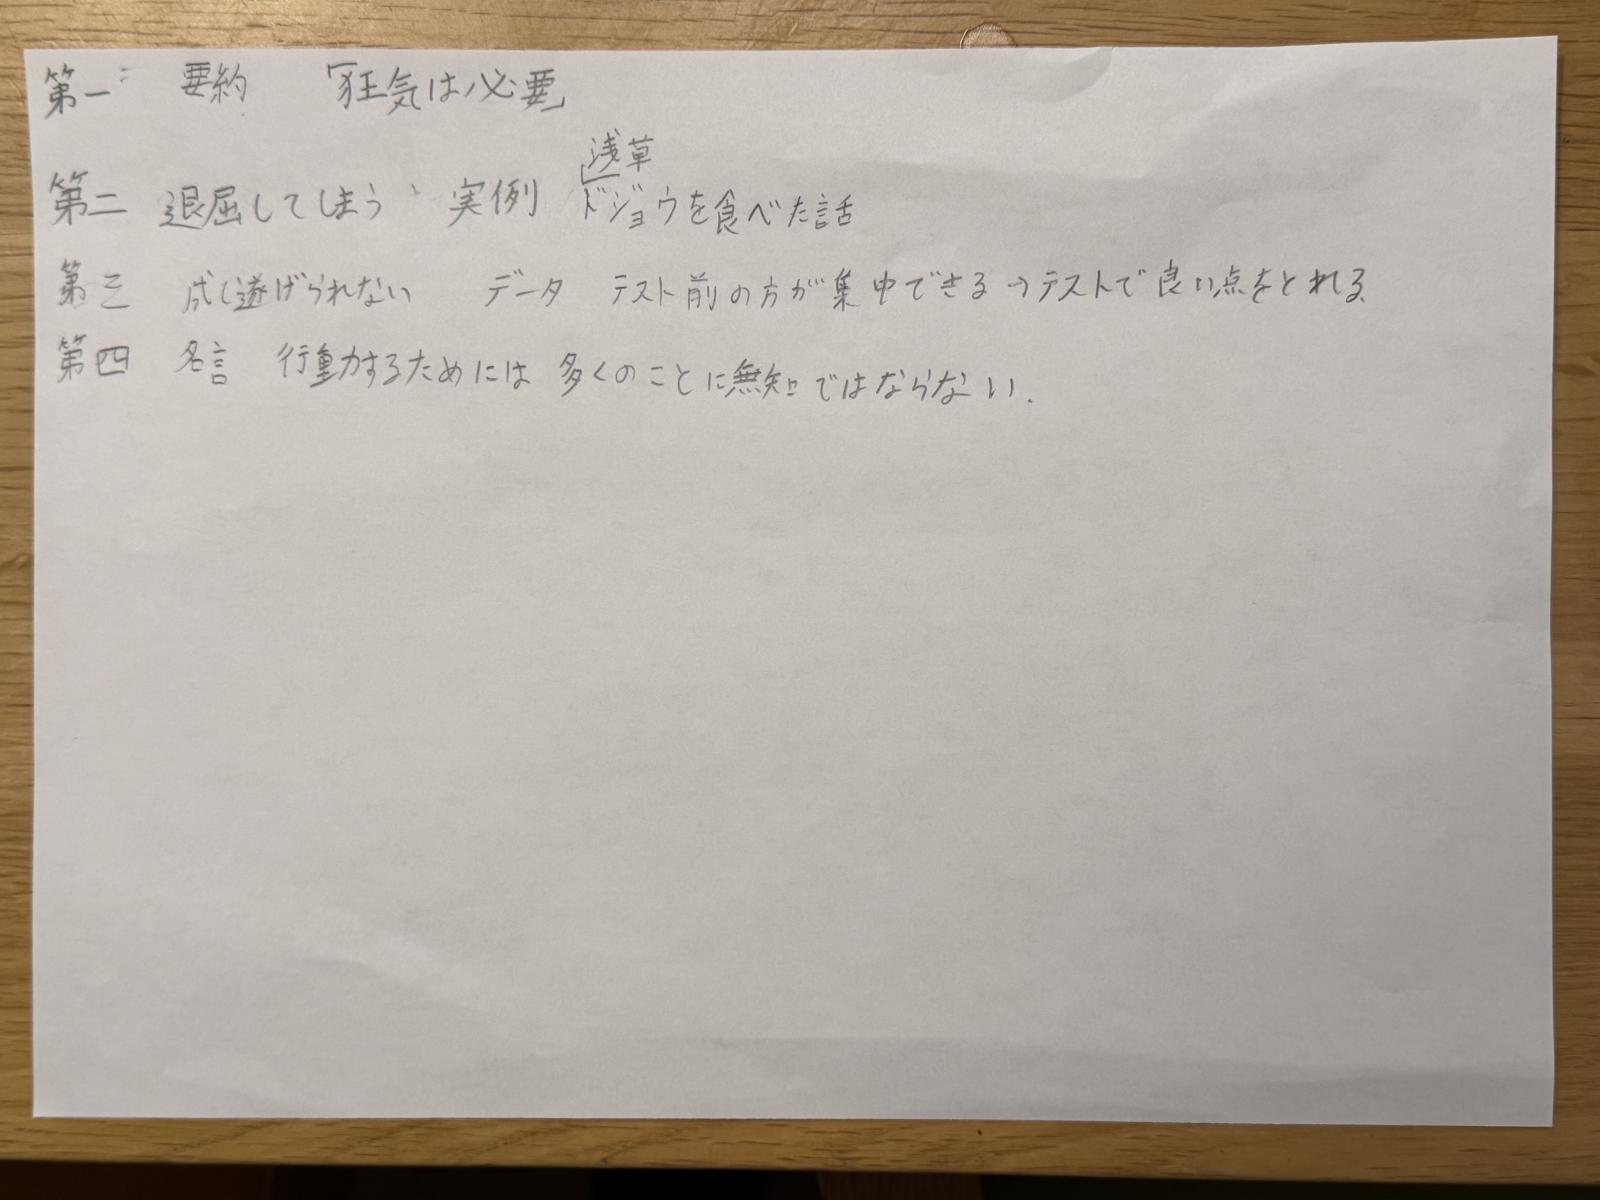 第一 要約 「狂気は必要」
浅草
第二 退屈してしまう 実例 ドジョウを食べた話
第三 成し遂げられない データ テスト前の方が集中できる→テストで良い点をとれる
第四 名言 行動力するためには 多くのことに無知ではならない.